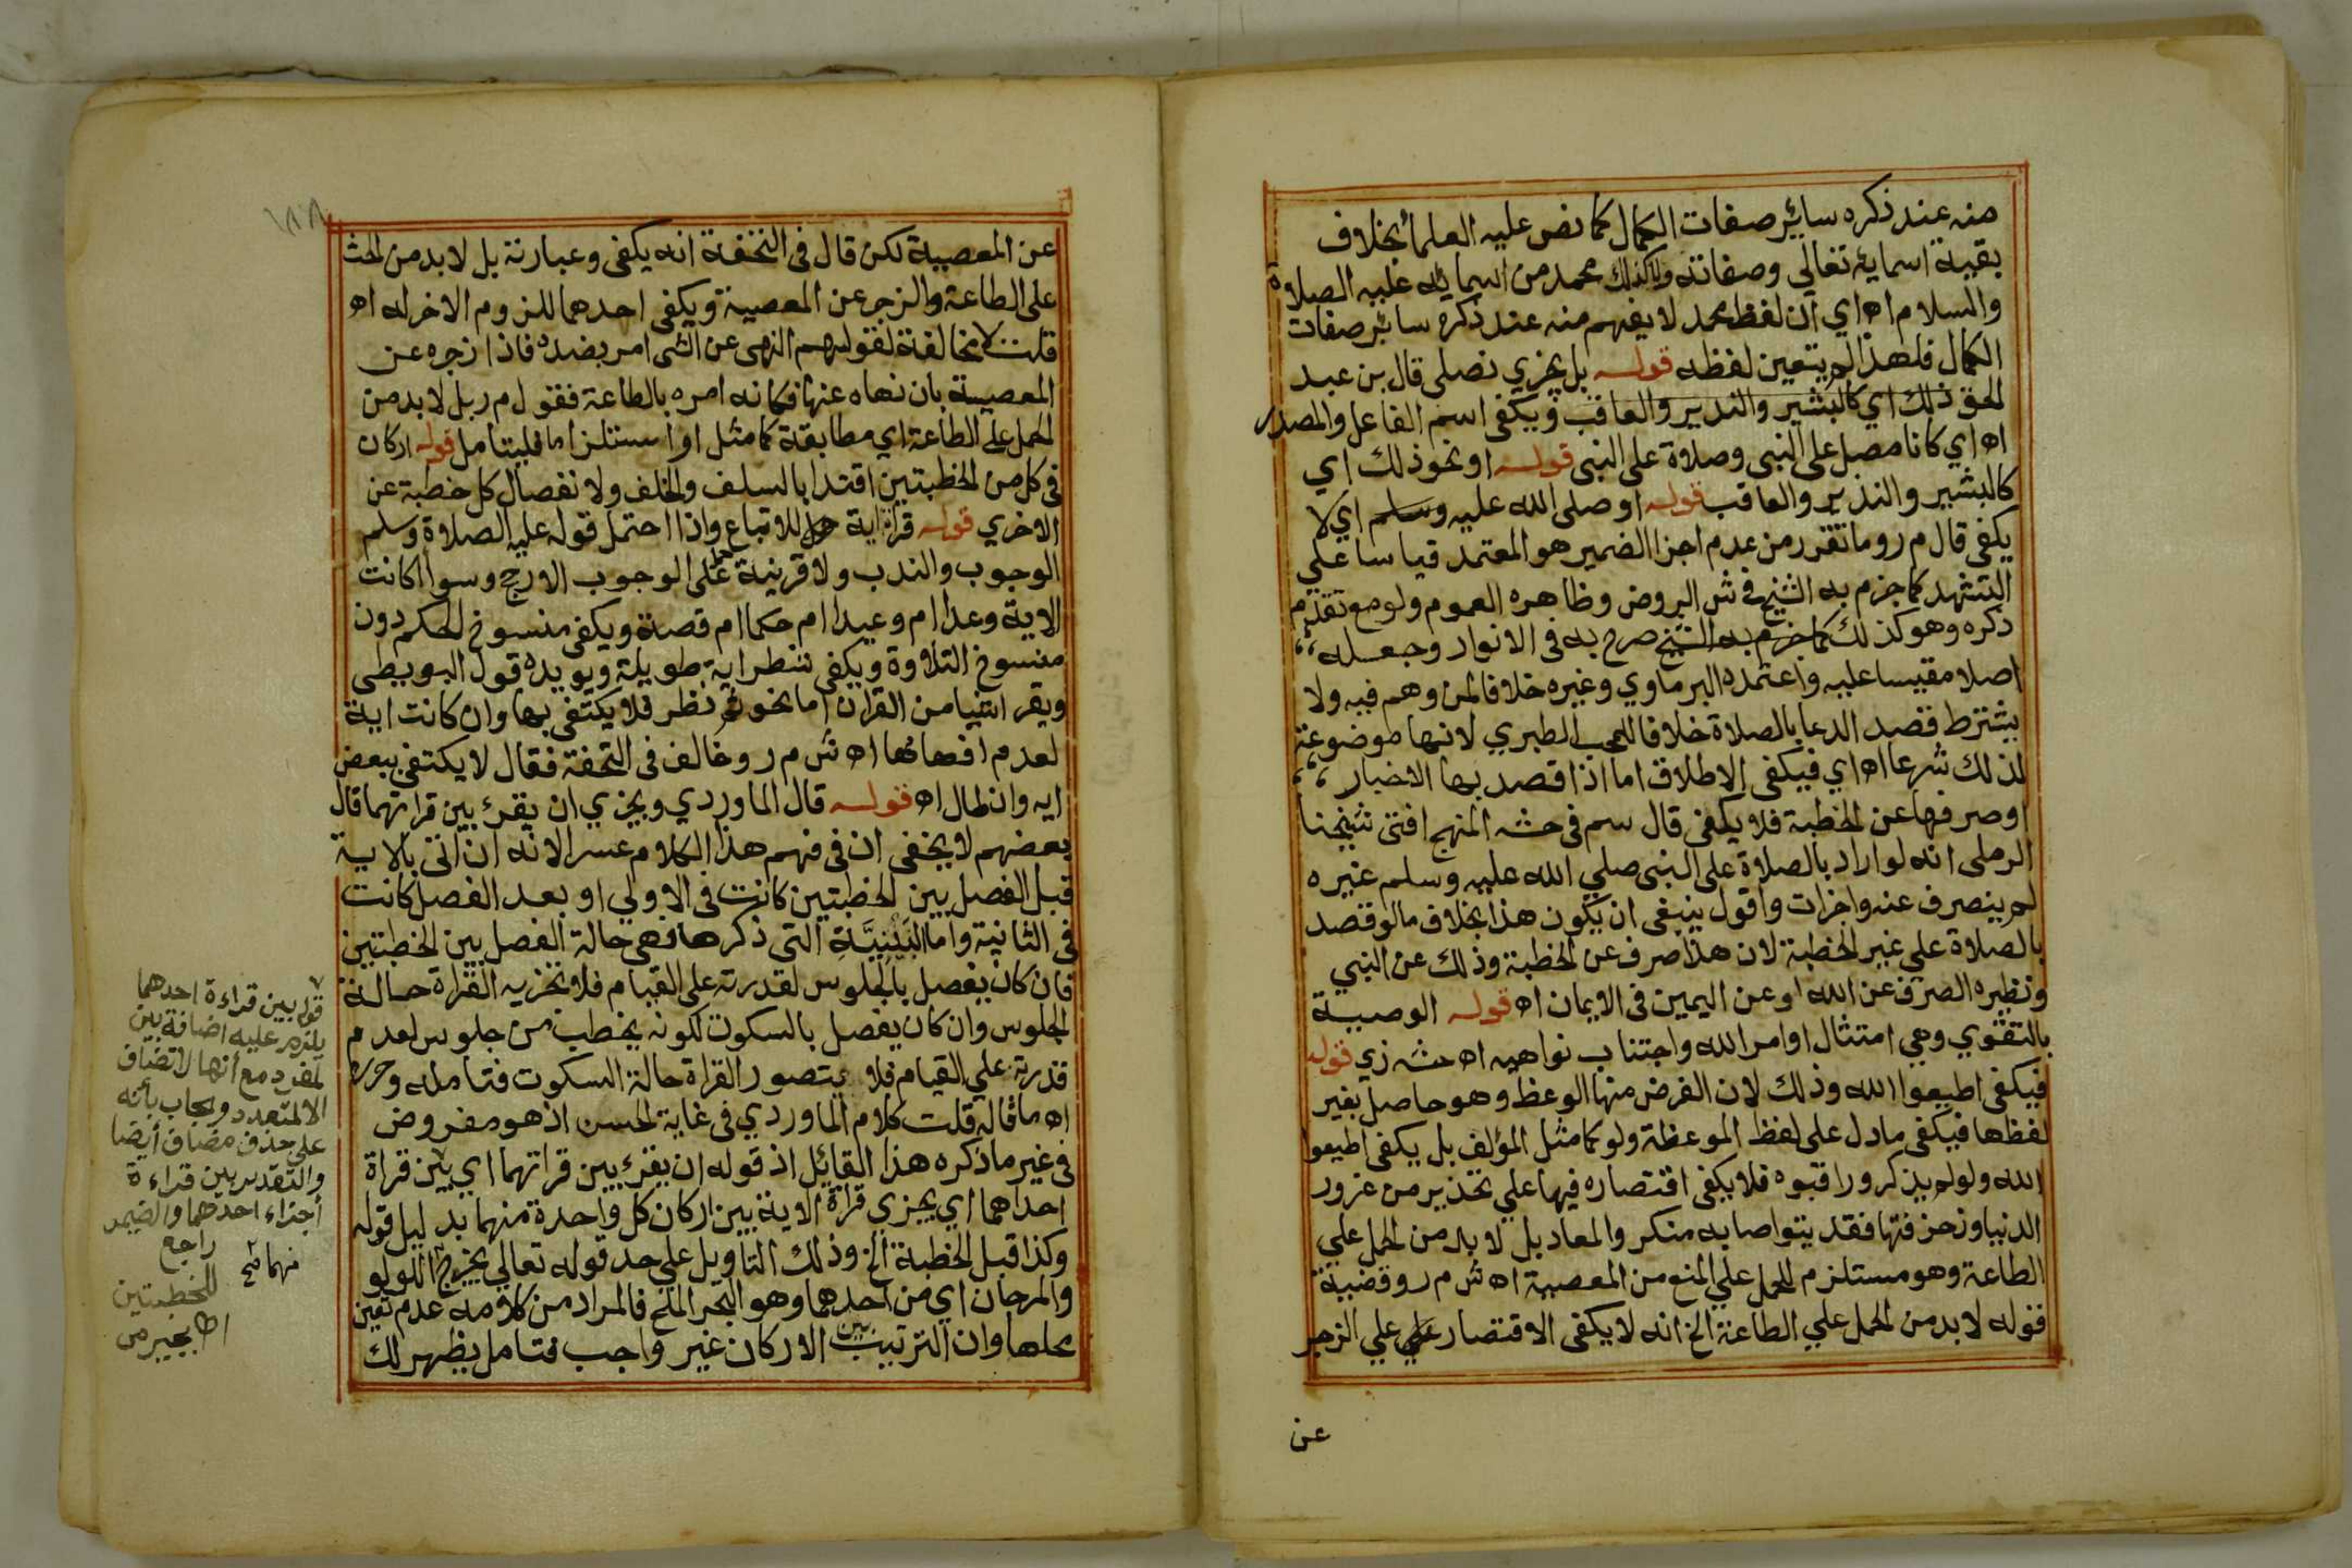 منه عند ذكره سائر صفات الكمال كما نص عليه العلما بخلاف
بقية اسمايه تعالي وصفاته ولا كذلك محمد من اسمايه عليه الصلاة
والسلام اه اي ان لفظ محمد لا يفهم منه عند ذكره سائر صفات
الكمال فلهذا لم يتعين لفظه قوله بل يجزي نصلى قال بن عبد
الحق ذلك اي كالبشير والنذير والعاقب ويكفى اسم الفاعل والمصدر
اه اي كانا مصل على النبى وصلاة على النبى قوله او نحو ذلك اي
كالبشير والنذير والعاقب قوله او صلى الله عليه وسلم اي لا
يكفى قال م ر وما تقرر من عدم اجزا الضمير هو المعتمد قياسا علي
التشهد كما جزم به الشيخ في ش الروض وظاهره العموم ولو مع تقدم
ذكره وهو كذلك كما جزم به الشيخ صرح به فى الانوار وجعله
اصلا مقيسا عليه واعتمده البرماوي وغيره خلافا لمن وهم فيه ولا
يشترط قصد الدعا بالصلاة خلافا للمحب الطبري لانها موضوعة
لذلك شرعا اه اي فيكفى الاطلاق اما اذا قصد بها الاخبار
او صرفها عن الخطبة فلا يكفى قال سم فى حشه المنهج افتى شيخنا
الرملى انه لو اراد بالصلاة على النبى صلي الله عليه وسلم غيره
لم ينصرف عنه واجزات واقول ينبغى ان يكون هذا بخلاف ما لو قصد
بالصلاة علي غير الخطبة لان هذا صرف عن الخطبة وذلك عن النبي
ونظيره الصرف عن الله او عن اليمين فى الايمان اه قوله الوصية
بالتقوي وهي امتثال اوامر الله واجتناب نواهيه اه حشه زي قوله
فيكفى اطيعوا الله وذلك لان الفرض منها الوعظ وهو حاصل بغير
لفظها فيكفى ما دل على لفظ الموعظة ولو كما مثل المؤلف بل يكفى اطيعوا
الله ولو لم يذكر وراقبوه فلا يكفى اقتصاره فيها علي تحذير من غرور
الدنيا وزخرفتها فقد يتواصا به منكر والمعاد بل لا بد من الحمل علي
الطاعة وهو مستلزم للحمل علي المنع من المعصية اه ش م ر وقضية
قوله لا بد من الحمل علي الطاعة الخ انه لا يكفى الاقتصار علي علي الزجر
عن
عن المعصية لكن قال فى التحفة انه يكفى وعبارته بل لا بد من الحث
على الطاعة والزجر عن المعصية ويكفى احدهما للزوم الاخر له اه
قلت لا مخالفة لقولهم النهى عن الشى امر بضده فاذا زجره عن
المعصية بان نهاه عنها فكانه امره بالطاعة فقول م ر بل لا بد من
الحمل على الطاعة اي مطابقة كما مثل او استلزاما فليتامل قوله اركان
فى كل من الخطبتين اقتدا بالسلف والخلف ولانفصال كل خطبة عن
الاخري قوله قراة اية للاتباع واذا احتمل قوله عليه الصلاة وسلم
الوجوب والندب ولا قرينة حمل على الوجوب الارجح وسوا اكانت
الاية وعدا ام وعيدا ام حكما ام قصة ويكفى منسوخ الحكم دون
منسوخ التلاوة ويكفى شطر اية طويلة ويويده قول البويطى
ويقرا شيا من القران اما نحو ثم نظر فلا يكتفى بها وان كانت اية
لعدم افهامها اه ش م ر وخالف فى التحفة فقال لا يكتفى ببعض
ايه وان طال اه قوله قال الماوردي ويجزي ان يقرئ بين قراتهما قال
بعضهم لا يخفى ان فى فهم هذا الكلام عسر الانه ان اتى بالاية
قبل الفصل بين الخطبتين كانت فى الاولي او بعد الفصل كانت
فى الثانية واما البَيْنِيَّةِ التى ذكرها فهى حالة الفصل بين الخطبتين
فان كان يفصل بالجلوس لقدرته على القيام فلا تجزيه القراة حالة
الجلوس وان كان يفصل بالسكوت لكونه يخطب من جلوس لعدم
قدرته علي القيام فلا يتصور القراة حالة السكوت فتامله وحرره
اه ما قاله قلت كلام الماوردي فى غاية الحسن اذ هو مفروض
فى غير ما ذكره هذا القائل اذ قوله ان يقرئ بين قراتهما اي بين قراة
احداهما اي يجزي قراة الاية بين اركان كل واحدة منهما بدليل قوله
وكذا قبل الخطبة الخ وذلك التاويل علي حد قوله تعالي يخرج منهما اللولو
والمرجان اي من احدهما وهو البحر الملح فالمراد من كلامه عدم تعين
محلها وان الترتيب بين الاركان غير واجب فتامل يظهر لك
١٨٨
قوله بين قراءة احدهما
يلزم عليه اضافة بين
لمفرد مع أنها لا تضاف
الا لمتعدد ويجاب بأنه
على حذف مضاف أيضا
والتقدير بين قراءة
أجزاء احدهما والضمير
راجع
للخطبتين
اه بجيرمى
منهما صح